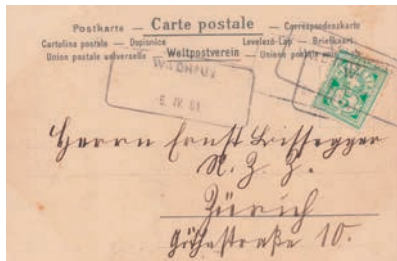 Postkarte — Carte postale — Correspondenzkarte
Cartolina postale — Dopisnice Levelező-Lap — Briefkaart
Union postale universelle — Weltpostverein — Unione postale
Herrn Ernst Bissegger
N. Z. Z.
Zürich
Göthestraße 10.